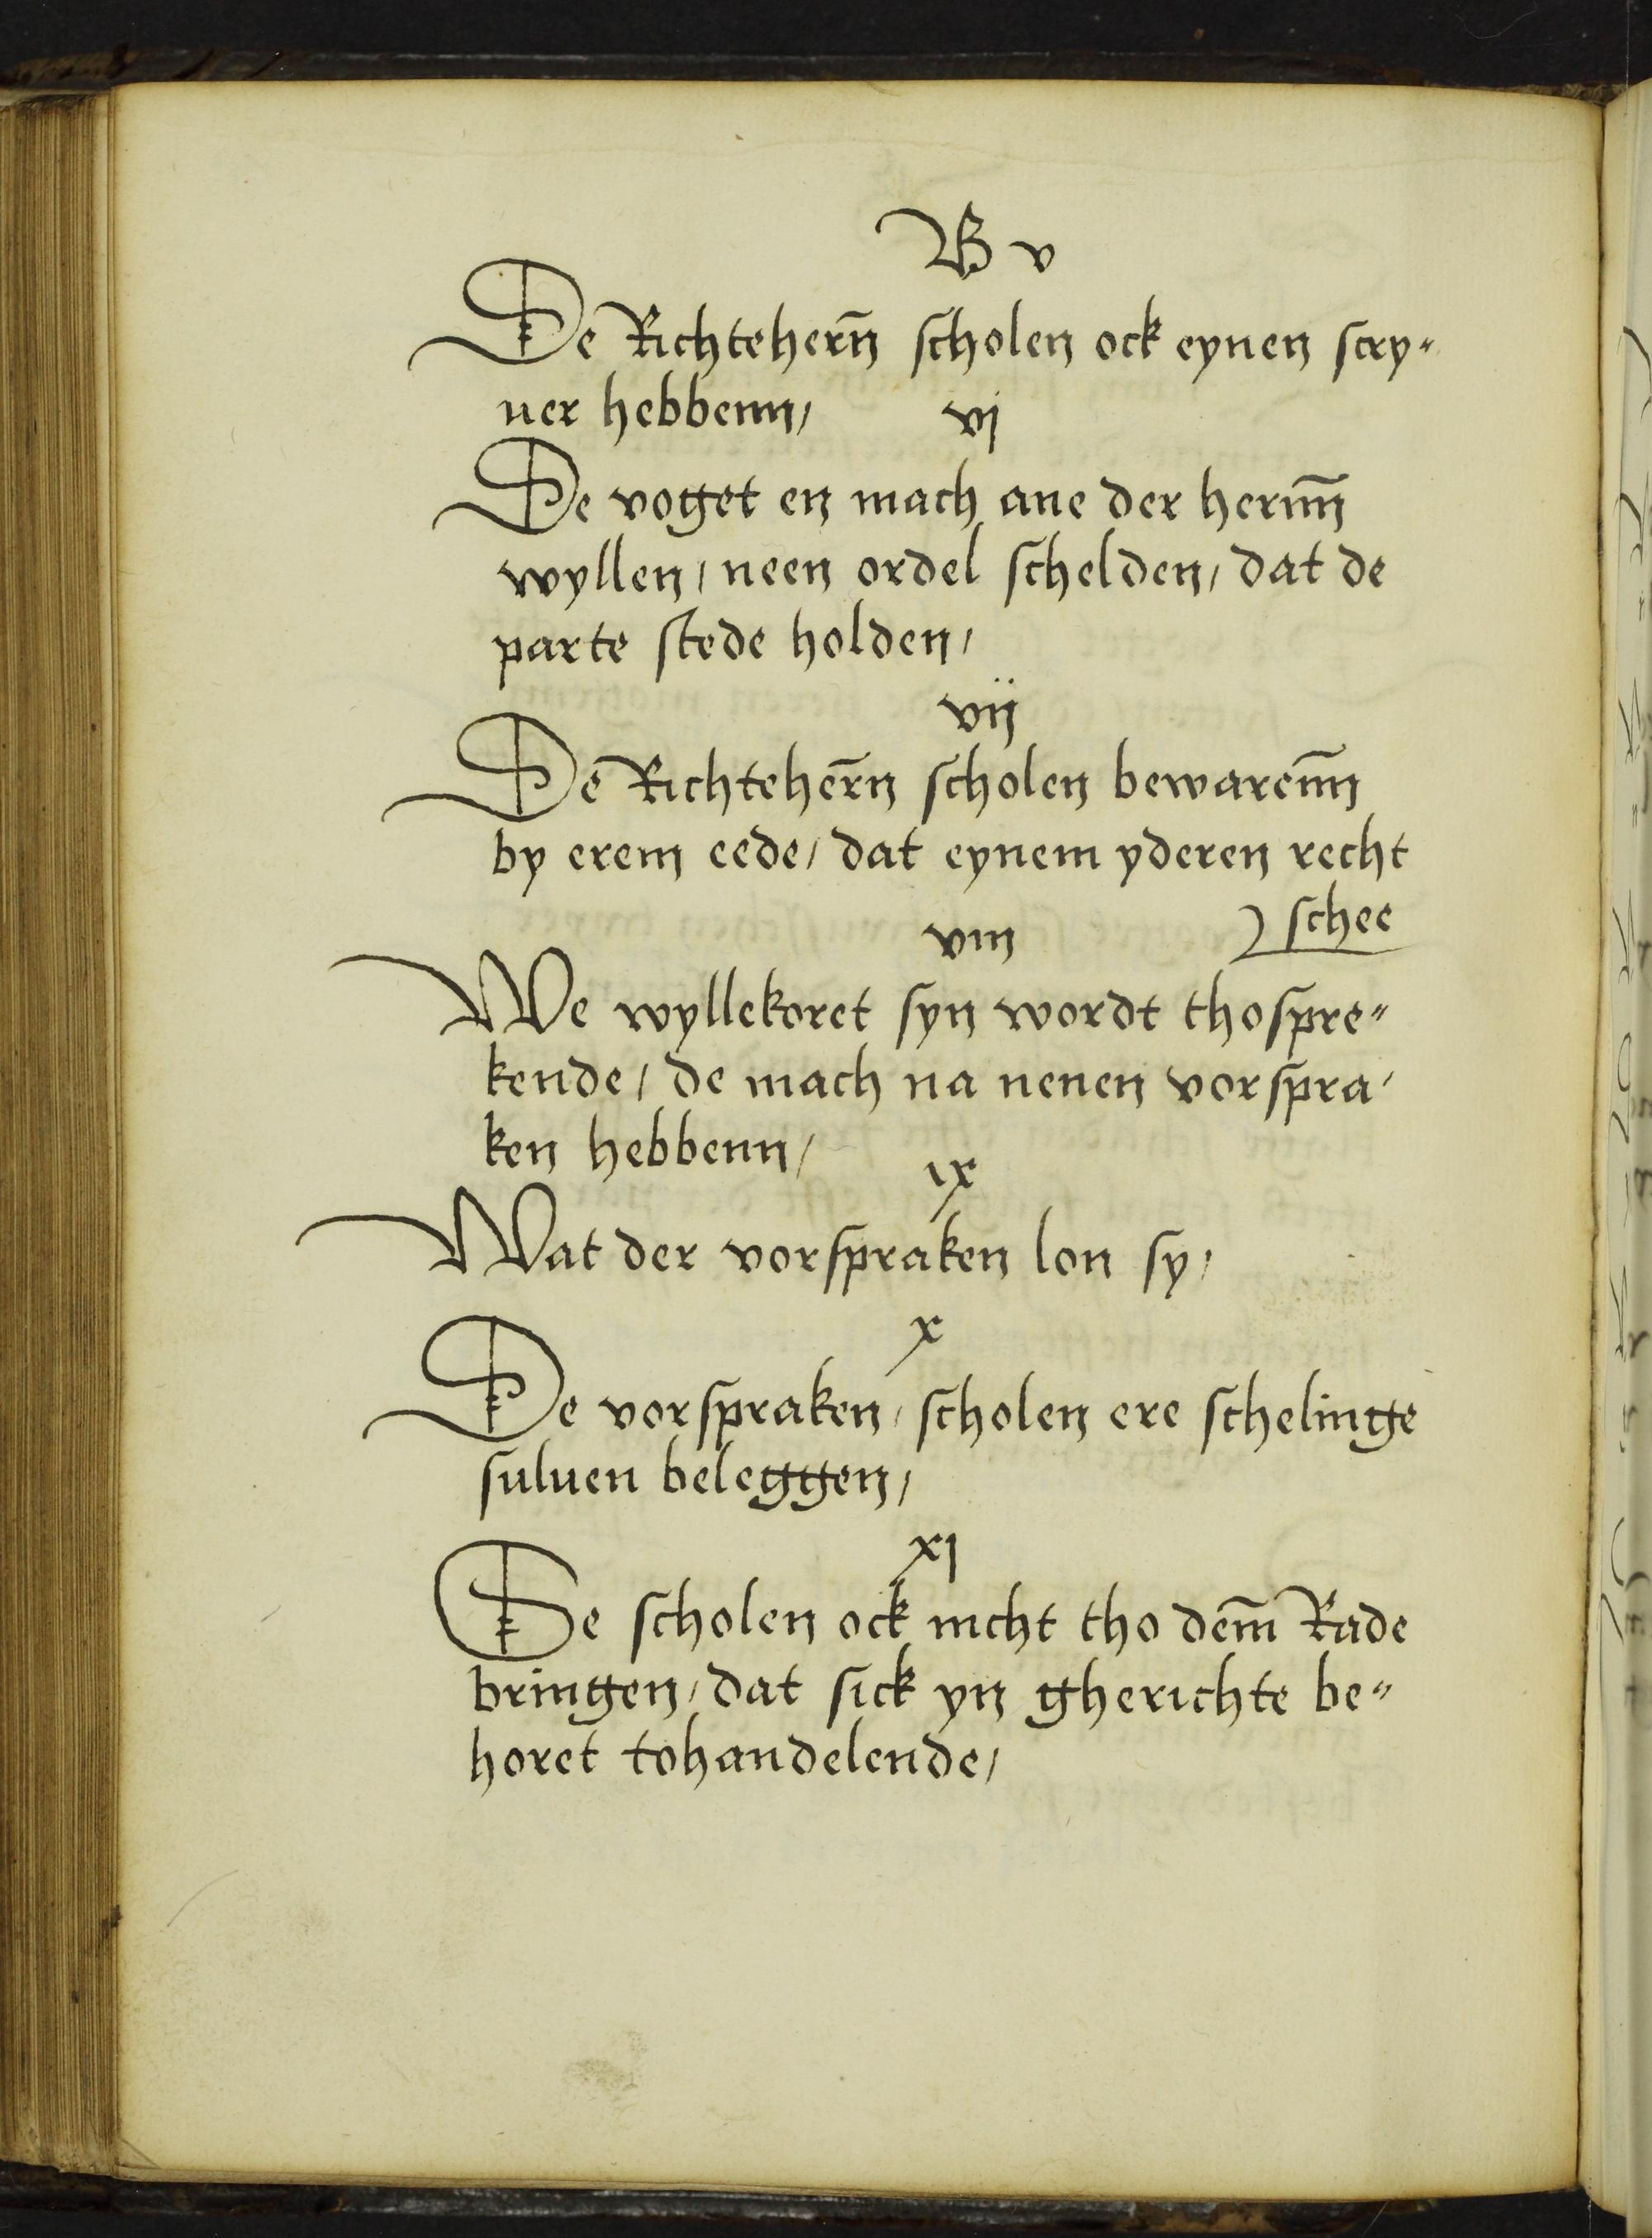 B v
De Richtehern̄ scholen ock eynen scry⸗
uer hebbenn/
vj
De voget en mach ane der hernn̄
wyllen/ neen ordel schelden/ dat de
parte stede holden/
vij
De Richteher̄n scholen bewarenn̄
by erem eede/ dat eynem yderen recht
schee
viij
We wyllekoret syn wordt thospre⸗
kende/ de mach na nenen vorspra⸗
ken hebbenn/
ix
Wat der vorspraken lon sy/
x
De vorspraken/ scholen ere schelinge
suluen beleggen/
xj
Se scholen ock nicht tho dem̄ Rade
bringen/ dat sick yn gherichte be⸗
horet tohandelende/